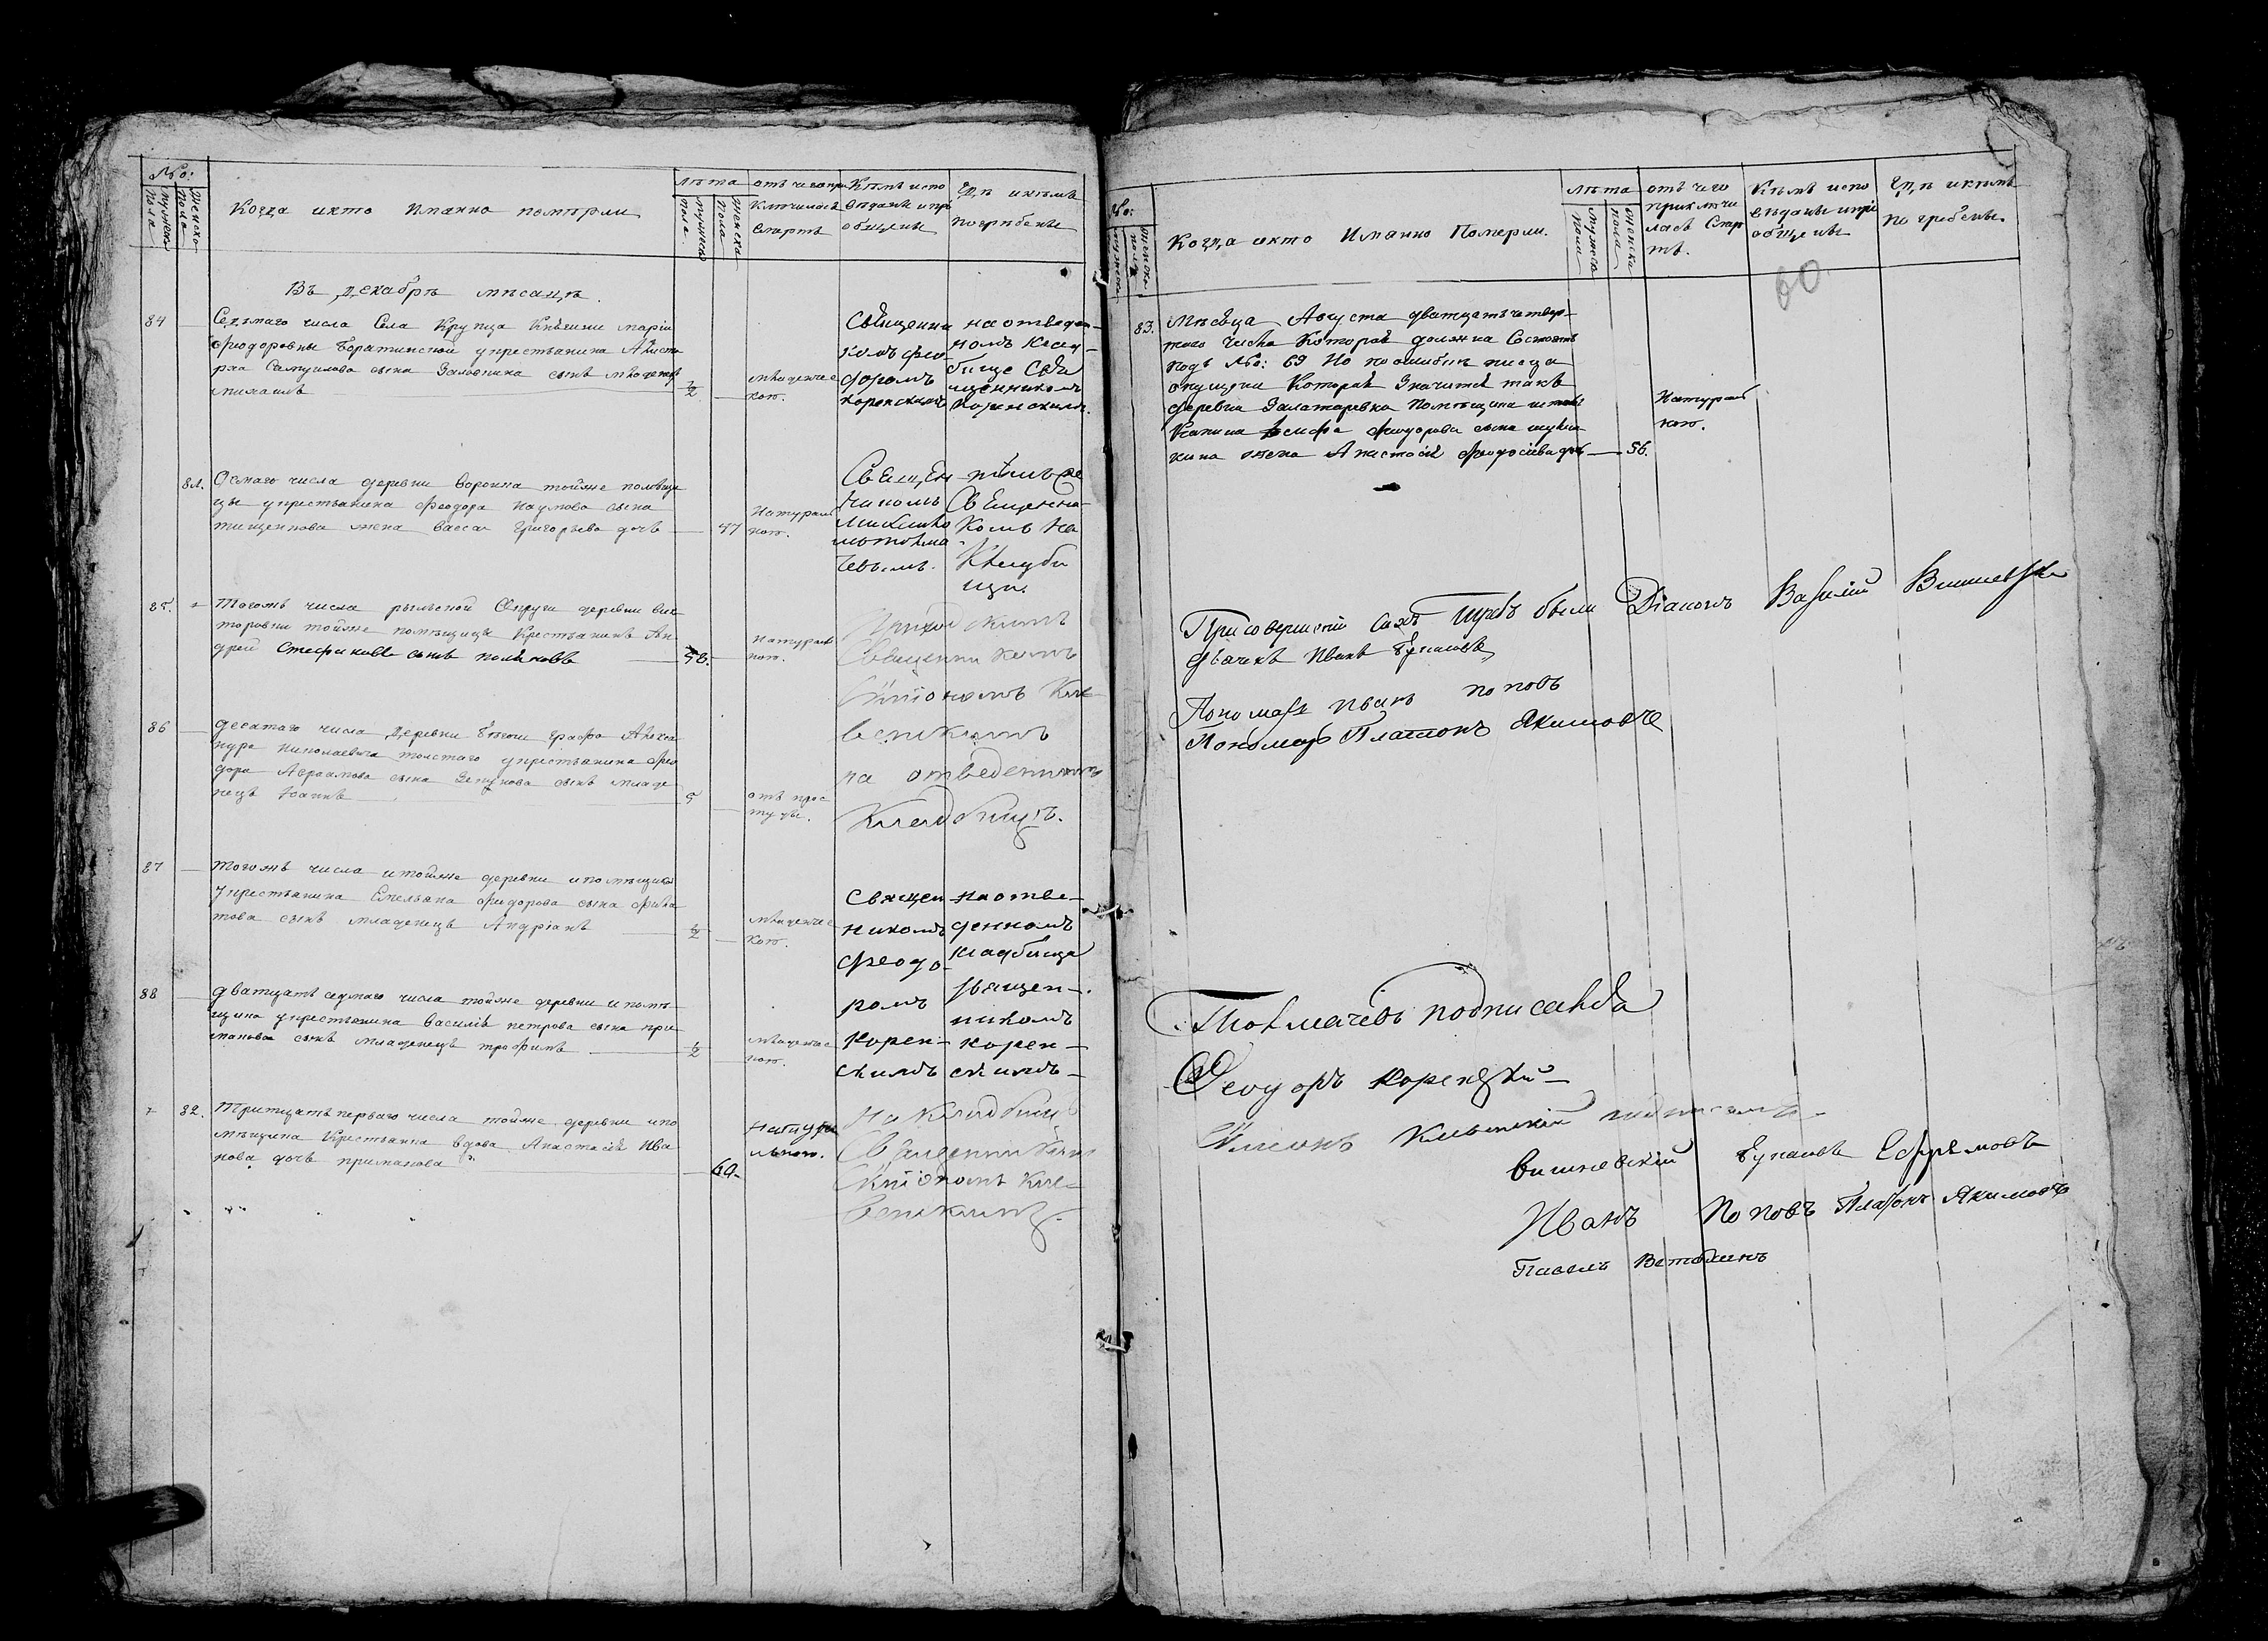 №:
Мужеск Пола
Женско Пола
Когда икто Имянно помѣрли
лѣта
Мужеска пола
Женска Пола
отъ чего при
ключилась
Смерть
Кѣмъ испо
вѣданы и прі
общены
Гдѣ икѣмъ
погрѣбены
Въ Декабрѣ мѣсяцѣ.
84
Седмаго числа Села Крупца Княгини Маріи
Феодоровны Боратинской у крестьянина
Самуилова сына сынъ младенецъ
Михаилъ
½
младенчес
кою.
Священни
комъ Фео
доромъ
Коренскимъ
на отведен
номъ клад
бище Свя
щенникомъ
Коренскимъ.
81.
Осмаго числа деревни Воронка тойже помѣщи
цы у крестьянина Феодора Наумова сына
Тищенкова жена Васса Григорьева дочь
47
Натураль
ною.
Священ
никомъ
чевымъ.
тѣмъ же
Священни
комъ На
Кладби
щи.
85.
Тогожъ числа рыльской Округи деревни Вик
торовки тойже помѣщицы Крестьянинъ Ан
дрей Стефановъ сынъ Поляковъ
58.
Натураль
ною.
Приходскимъ
Священникомъ
Симіономъ Кле
венскимъ
на отведенномъ
Кладбищѣ.
86
десятаго числа Деревни графа Алекса
ндра Николаевича толстаго у крестьянина Фео
дора Аврамова сына сынъ младе
нецъ Іоаннъ
5
отъ прос
туды.
87
Тогожъ числа итойже деревни ипомѣщика
у крестьянина Емельяна Феодорова сына
сынъ младенецъ Андріанъ
½
младенчес
кою.
Священ
никомъ
Феодо
ромъ
Корен
скимъ
на отве
денномъ
кладбище
священ
никомъ
корен
скимъ
88
дватцать седмаго числа тойже деревни и помѣ
щика у крестьянина Василія петрова сына При
манова сынъ младенецъ трофимъ
½
младенчес
кою.
82.
Тритцать перваго числа тойже деревни ипо
мѣщика Крестьянка вдова Анастасія Ива
нова дочь приманова
60
Натура
льною.
На Кладбищѣ
Священникомъ
Симіономъ Кле
венскимъ.
№:
Когда икто Имянно Померли.
лѣта
Мужеска пола
Женска пола
отъ чего
приключи
лась Смер
ть.
Кѣмъ испо
вѣданы ипрі
общены
Гдѣ икѣмъ
погребены.
60
83.
Мѣсяца Августа дватцать четвер
таго Числа Которая должна Состоять
подъ №: 69 Но по ошибки писца
опущена Которая Значится такъ
деревни Залатаревка Помѣщика
Осифа Феодорова сына
жена Анастасія Феодосіева дочь
56.
Натураль
ною.
При совершеніи сихъ Требъ были Діаконъ Василій Вишневскій
дьячекъ Иванъ
Пономарь Иванъ поповъ
Пономарь Платонъ Якимовъ
Толмачевъ подписался
Феодоръ Коренскій
Симіонъ Клевенскій подписался
Вишневскій Ефремовъ
Иванъ Поповъ Платонъ Якимовъ
Павелъ